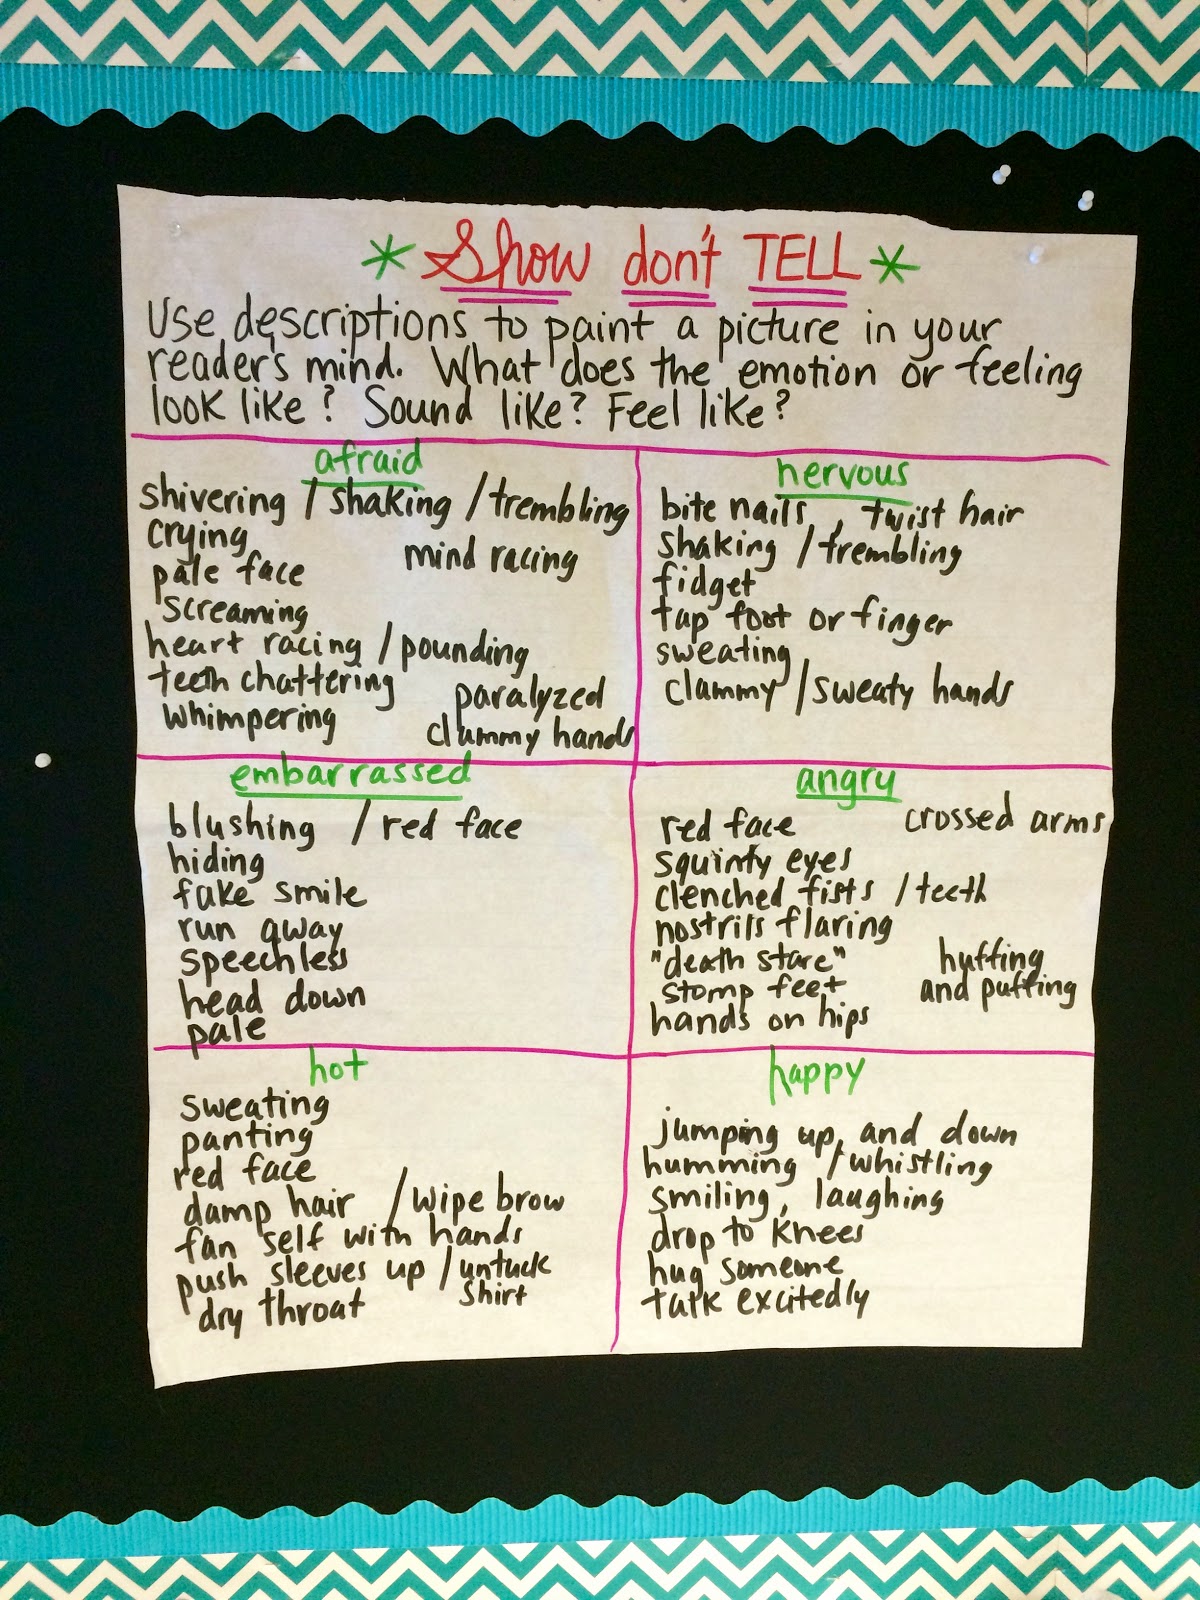 * Show don't TELL *
Use descriptions to paint a picture in your
reader's mind. What does the emotion or feeling
look like? Sound like? Feel like?
afraid
shivering / shaking / trembling
crying
mind racing
pale face
screaming
heart racing / pounding
teeth chattering
paralyzed
whimpering
clammy hands
nervous
bite nails, twist hair
shaking / trembling
fidget
tap foot or finger
sweating
clammy / sweaty hands
embarrassed
blushing / red face
hiding
fake smile
run away
speechless
head down
pale
angry
red face
crossed arms
squinty eyes
clenched fists / teeth
nostrils flaring
"death stare"
stomp feet
hands on hips
huffing
and puffing
hot
sweating
panting
red face
damp hair / wipe brow
fan self with hands
push sleeves up / untuck
shirt
dry throat
happy
jumping up and down
humming / whistling
smiling, laughing
drop to knees
hug someone
talk excitedly